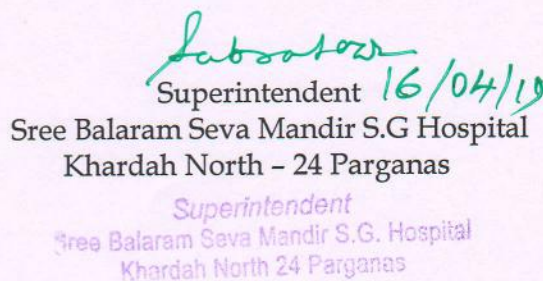 Superintendent 16/04/19
Sree Balaram Seva Mandir S.G Hospital
Khardah North – 24 Parganas
Superintendent
Sree Balaram Seva Mandir S.G. Hospital
Khardah North 24 Parganas